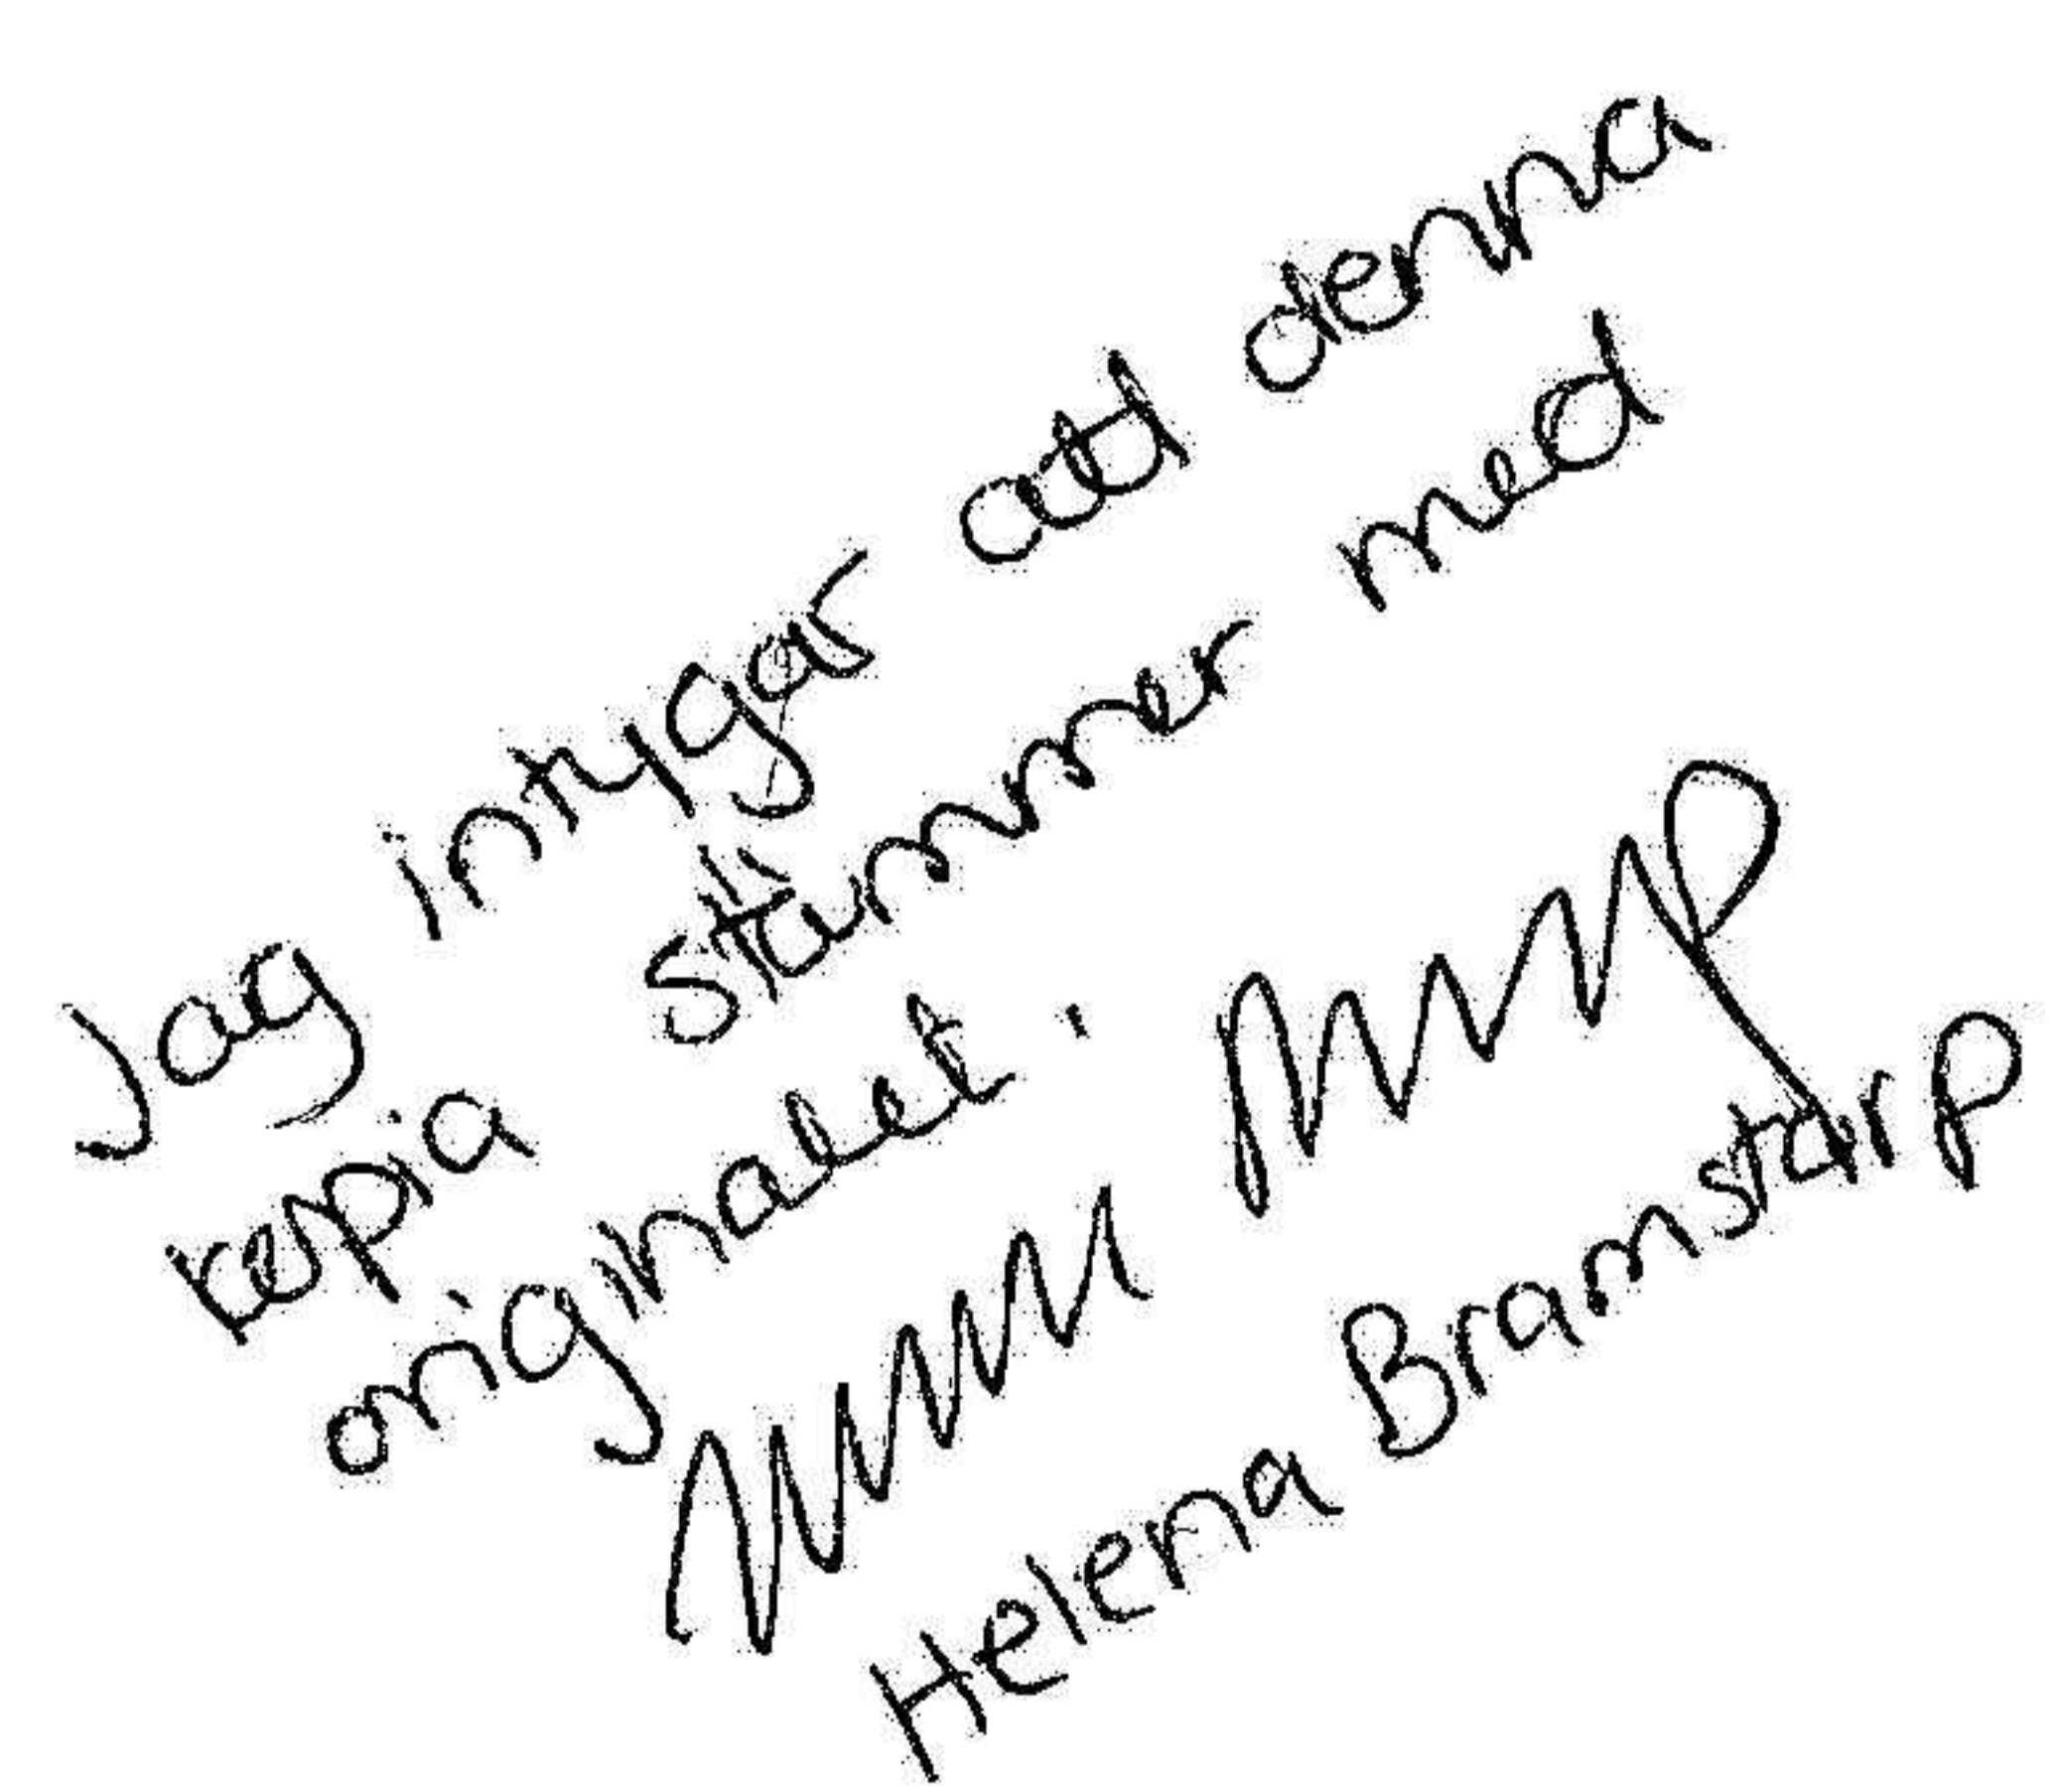 Jag intygar att denna
kopia stämmer med
originalet.
Helena Bramstarp